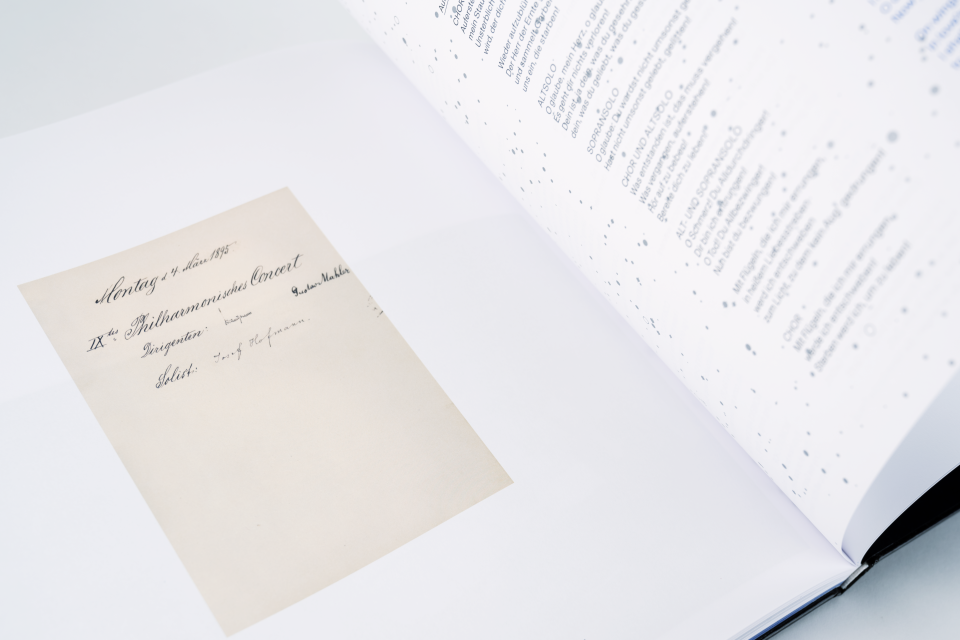 Montag d. 4. März 1895
IXtes Philharmonisches Concert
Dirigenten: Gustav Mahler
Solist: Josef Hofmann.
CHOR
Auferste
mein Staub
Unsterblich
wird, der dich
Wieder aufzublü
Der Herr der Ernte
und sammelt Garben
uns ein, die starben!
ALTSOLO
O glaube, mein Herz, o glau
Es geht dir nichts verloren!
Dein ist, ja dein, was du gesehn
dein, was du geliebt, was du ges
SOPRANSOLO
O glaube: Du wardst nicht umsonst ge
Hast nicht umsonst gelebt, gelitten!
CHOR UND ALTSOLO
Was entstanden ist, das muss vergehen!
Was vergangen, auferstehen!
Hör auf zu beben!
Bereite dich zu leben!
ALT- UND SOPRANSOLO
O Schmerz! Du Alldurchdringer!
Dir bin ich entrungen!
O Tod! Du Allbezwinger!
Nun bist du bezwungen!
Mit Flügeln, die ich mir errungen,
in heißem Liebesstreben
werd ich entschweben
zum Licht, zu dem kein Aug' gedrungen!
CHOR
Mit Flügeln, die ich mir errungen,
werde ich entschweben!
Sterben werd ich, um zu leben!